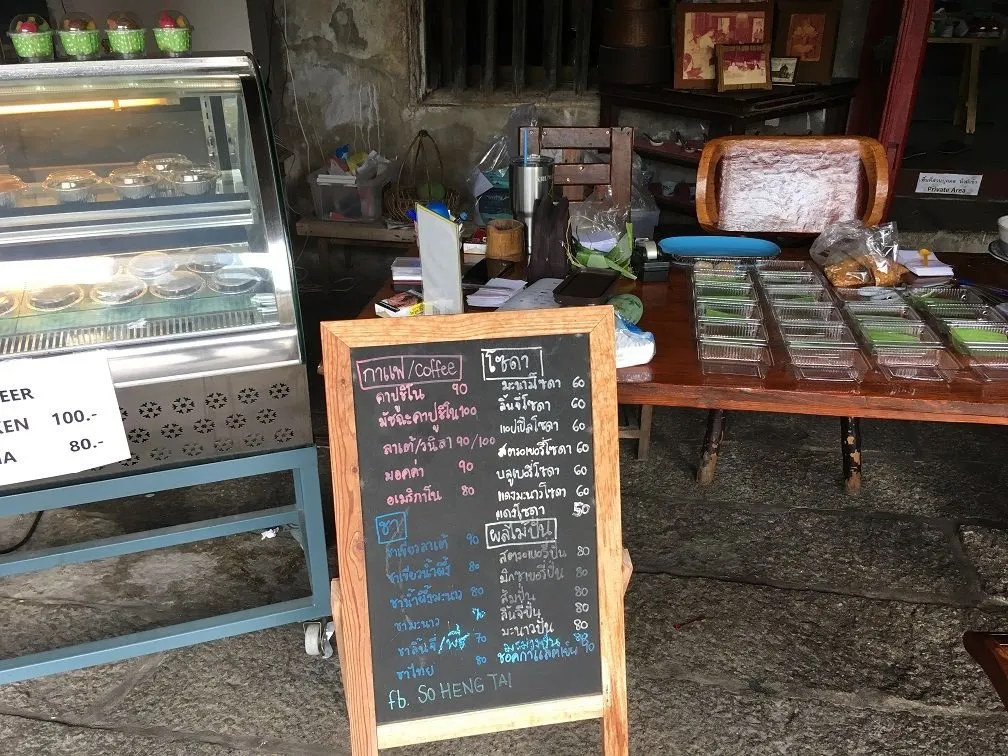 EER
KEN 100.-
A 80.-
พื้นที่ส่วนบุคคล
Private Area
กาแฟ/Coffee
คาปูชิโน 90
มัชฉะคาปูชิโน 100
ลาเต้/วนิลา 90/100
มอคค่า 90
อเมริกาโน 80
ชา
ชาเขียวลาเต้ 90
ชาเขียวน้ำผึ้ง 80
ชาน้ำผึ้งมะนาว 80
ชามะนาว
ชาลิ้นจี่/พีช 70
ชาไทย 80
fb. SO HENG TAI
โซดา
มะนาวโซดา 60
ลิ้นจี่โซดา 60
แอปเปิลโซดา 60
สตรอเบอรี่โซดา 60
บลูเบอรี่โซดา 60
แดงมะนาวโซดา 60
แดงโซดา 50
ผลไม้ปั่น
สตรอเบอรี่ปั่น 80
มิกซ์เบอรี่ปั่น 80
ส้มปั่น 80
ลิ้นจี่ปั่น 80
มะนาวปั่น 80
มะม่วงปั่น 80
ช็อคกาแลตเย็น 90